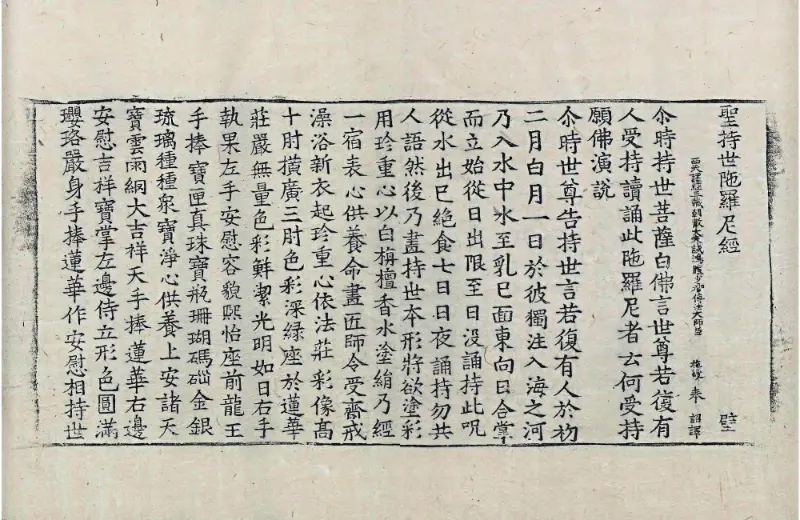 聖持世陁羅尼經 壁
西天譯經三藏朝散大夫試鴻臚少卿傳法大師臣 施護 奉 詔譯
尒時持世菩薩白佛言世尊若復有
人受持讀誦此陁羅尼者云何受持
願佛演說
尒時世尊告持世言若復有人於初
二月白月一日於彼獨注入海之河
乃入水中水至乳巳面東向日合掌
而立始從日出限至日没誦持此呪
從水出巳絶食七日日夜誦持勿共
人語然後乃畫持世本形將欲塗彩
用珍重心以白栴檀香水塗絹乃經
一宿表心供養命畫匠師令受齋戒
澡浴新衣起珍重心依法莊彩像高
十肘橫廣三肘色彩深綠座於蓮華
莊嚴無量色彩鮮潔光明如日右手
執果左手安慰容貌熙怡座前龍王
手捧寶匣真珠寶瓶珊瑚碼碯金銀
琉璃種種衆寶淨心供養上安諸天
寶雲雨網大吉祥天手捧蓮華右邊
安慰吉祥寶掌左邊侍立形色圓滿
瓔珞嚴身手捧蓮華作安慰相持世